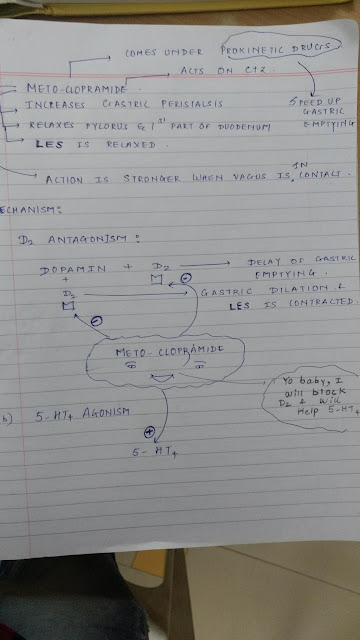 COMES UNDER PROKINETIC DRUGS
ACTS ON CTZ.
METO-CLOPRAMIDE
INCREASES GASTRIC PERISTALSIS
SPEED UP
GASTRIC
EMPTYING
RELAXES PYLORUS & 1st PART OF DUODENUM
LES IS RELAXED.
ACTION IS STRONGER WHEN VAGUS IS IN CONTACT.
ECHANISM:
D2 ANTAGONISM:
DOPAMIN + D2 DELAY OF GASTRIC
EMPTYING.
+
D2 GASTRIC DILATION &
LES IS CONTRACTED.
METO-CLOPRAMIDE
Yo baby, I
will block
D2 & will
Help 5-HT4
b) 5-HT4 AGONISM
+
5-HT4